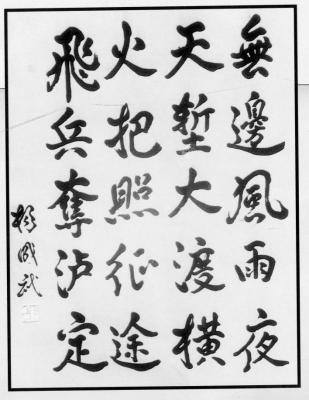 無邊風雨夜
天塹大渡橫
火把照征途
飛兵奪泸定
楊成武